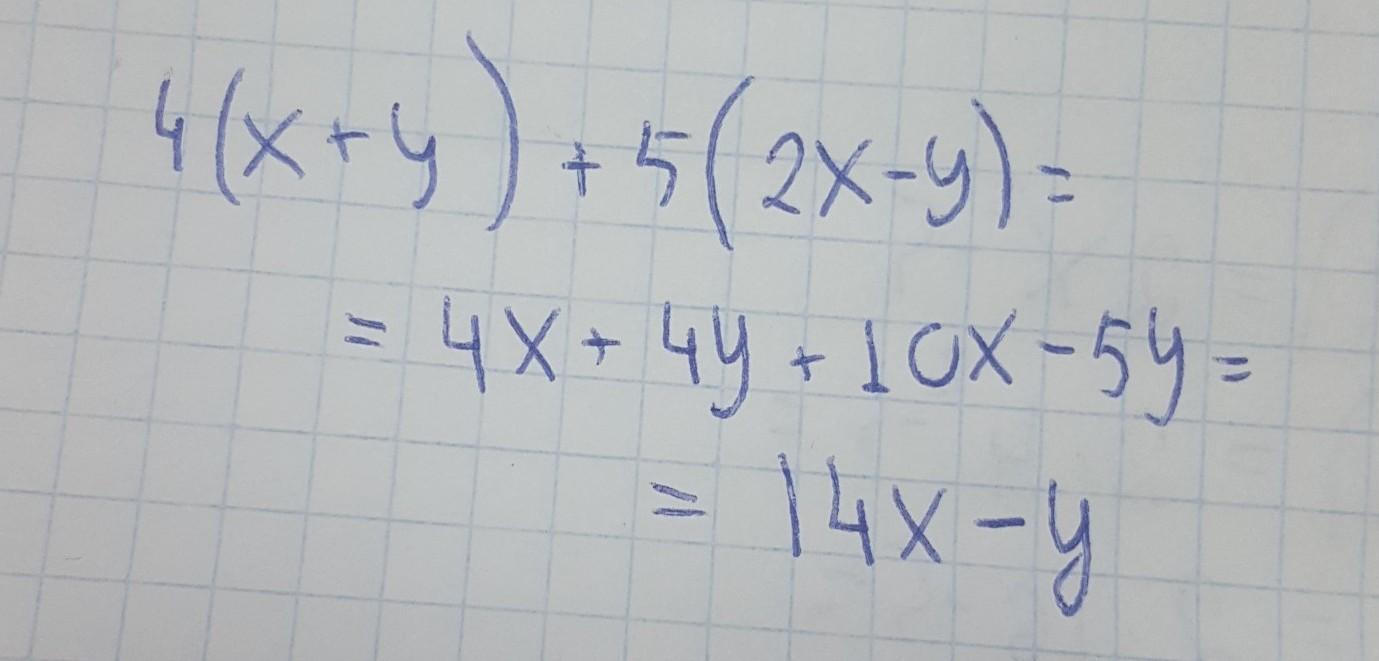 4(x+y)+5(2x-y)=
=4x+4y+10x-5y=
=14x-y